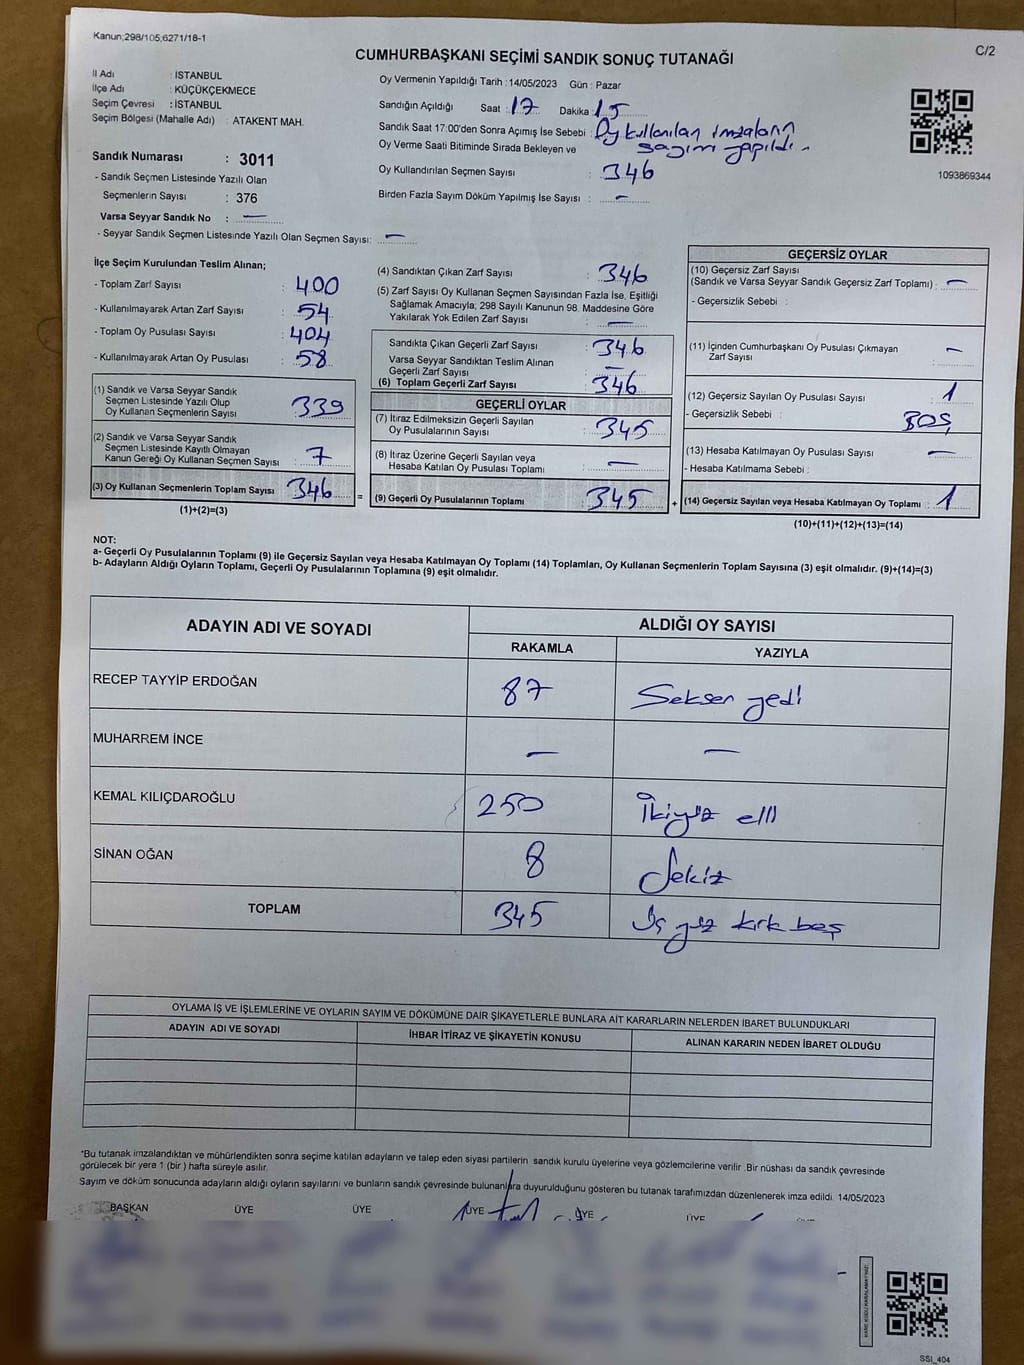 Kanun;298/105;6271/18-1
C/2
CUMHURBAŞKANI SEÇİMİ SANDIK SONUÇ TUTANAĞI
İl Adı : İSTANBUL
İlçe Adı : KÜÇÜKÇEKMECE
Seçim Çevresi : İSTANBUL
Seçim Bölgesi (Mahalle Adı) : ATAKENT MAH.
Sandık Numarası : 3011
- Sandık Seçmen Listesinde Yazılı Olan
Seçmenlerin Sayısı : 376
Varsa Seyyar Sandık No : —
- Seyyar Sandık Seçmen Listesinde Yazılı Olan Seçmen Sayısı: —
Oy Vermenin Yapıldığı Tarih : 14/05/2023 Gün : Pazar
Sandığın Açıldığı Saat : 17 Dakika : 15
Sandık Saat 17:00'den Sonra Açımış İse Sebebi : Oy kullanılan imzaların
Oy Verme Saati Bitiminde Sırada Bekleyen ve sayımı yapıldı.
Oy Kullandırılan Seçmen Sayısı : 346
Birden Fazla Sayım Döküm Yapılmış İse Sayısı : —
1093869344
İlçe Seçim Kurulundan Teslim Alınan;
- Toplam Zarf Sayısı : 400
- Kullanılmayarak Artan Zarf Sayısı : 54
- Toplam Oy Pusulası Sayısı : 404
- Kullanılmayarak Artan Oy Pusulası : 58
(1) Sandık ve Varsa Seyyar Sandık
Seçmen Listesinde Yazılı Olup
Oy Kullanan Seçmenlerin Sayısı : 339
(2) Sandık ve Varsa Seyyar Sandık
Seçmen Listesinde Kayıtlı Olmayan
Kanun Gereği Oy Kullanan Seçmen Sayısı : 7
(3) Oy Kullanan Seçmenlerin Toplam Sayısı : 346 =
(1)+(2)=(3)
(4) Sandıktan Çıkan Zarf Sayısı : 346
(5) Zarf Sayısı Oy Kullanan Seçmen Sayısından Fazla İse, Eşitliği
Sağlamak Amacıyla; 298 Sayılı Kanunun 98. Maddesine Göre
Yakılarak Yok Edilen Zarf Sayısı : —
Sandıkta Çıkan Geçerli Zarf Sayısı : 346
Varsa Seyyar Sandıktan Teslim Alınan
Geçerli Zarf Sayısı : —
(6) Toplam Geçerli Zarf Sayısı : 346
GEÇERLİ OYLAR
(7) İtiraz Edilmeksizin Geçerli Sayılan
Oy Pusulalarının Sayısı : 345
(8) İtiraz Üzerine Geçerli Sayılan veya
Hesaba Katılan Oy Pusulası Toplamı : —
(9) Geçerli Oy Pusulalarının Toplamı : 345 +
GEÇERSİZ OYLAR
(10) Geçersiz Zarf Sayısı
(Sandık ve Varsa Seyyar Sandık Geçersiz Zarf Toplamı) : —
- Geçersizlik Sebebi :
(11) İçinden Cumhurbaşkanı Oy Pusulası Çıkmayan
Zarf Sayısı : —
(12) Geçersiz Sayılan Oy Pusulası Sayısı : 1
- Geçersizlik Sebebi : BOŞ
(13) Hesaba Katılmayan Oy Pusulası Sayısı : —
- Hesaba Katılmama Sebebi :
(14) Geçersiz Sayılan veya Hesaba Katılmayan Oy Toplamı : 1
(10)+(11)+(12)+(13)=(14)
NOT:
a- Geçerli Oy Pusulalarının Toplamı (9) ile Geçersiz Sayılan veya Hesaba Katılmayan Oy Toplamı (14) Toplamları, Oy Kullanan Seçmenlerin Toplam Sayısına (3) eşit olmalıdır. (9)+(14)=(3)
b- Adayların Aldığı Oyların Toplamı, Geçerli Oy Pusulalarının Toplamına (9) eşit olmalıdır.
ADAYIN ADI VE SOYADI ALDIĞI OY SAYISI
RAKAMLA YAZIYLA
RECEP TAYYİP ERDOĞAN 87 Seksen yedi
MUHARREM İNCE — —
KEMAL KILIÇDAROĞLU 250 İkiyüz elli
SİNAN OĞAN 8 Sekiz
TOPLAM 345 Üç yüz kırk beş
OYLAMA İŞ VE İŞLEMLERİNE VE OYLARIN SAYIM VE DÖKÜMÜNE DAİR ŞİKAYETLERLE BUNLARA AİT KARARLARIN NELERDEN İBARET BULUNDUKLARI
ADAYIN ADI VE SOYADI İHBAR İTİRAZ VE ŞİKAYETİN KONUSU ALINAN KARARIN NEDEN İBARET OLDUĞU
*Bu tutanak imzalandıktan ve mühürlendikten sonra seçime katılan adayların ve talep eden siyasi partilerin sandık kurulu üyelerine veya gözlemcilerine verilir. Bir nüshası da sandık çevresinde
görülecek bir yere 1 (bir) hafta süreyle asılır.
Sayım ve döküm sonucunda adayların aldığı oyların sayılarını ve bunların sandık çevresinde bulunanlara duyurulduğunu gösteren bu tutanak tarafımızdan düzenlenerek imza edildi. 14/05/2023
BAŞKAN ÜYE ÜYE ÜYE ÜYE ÜYE
SSİ_404